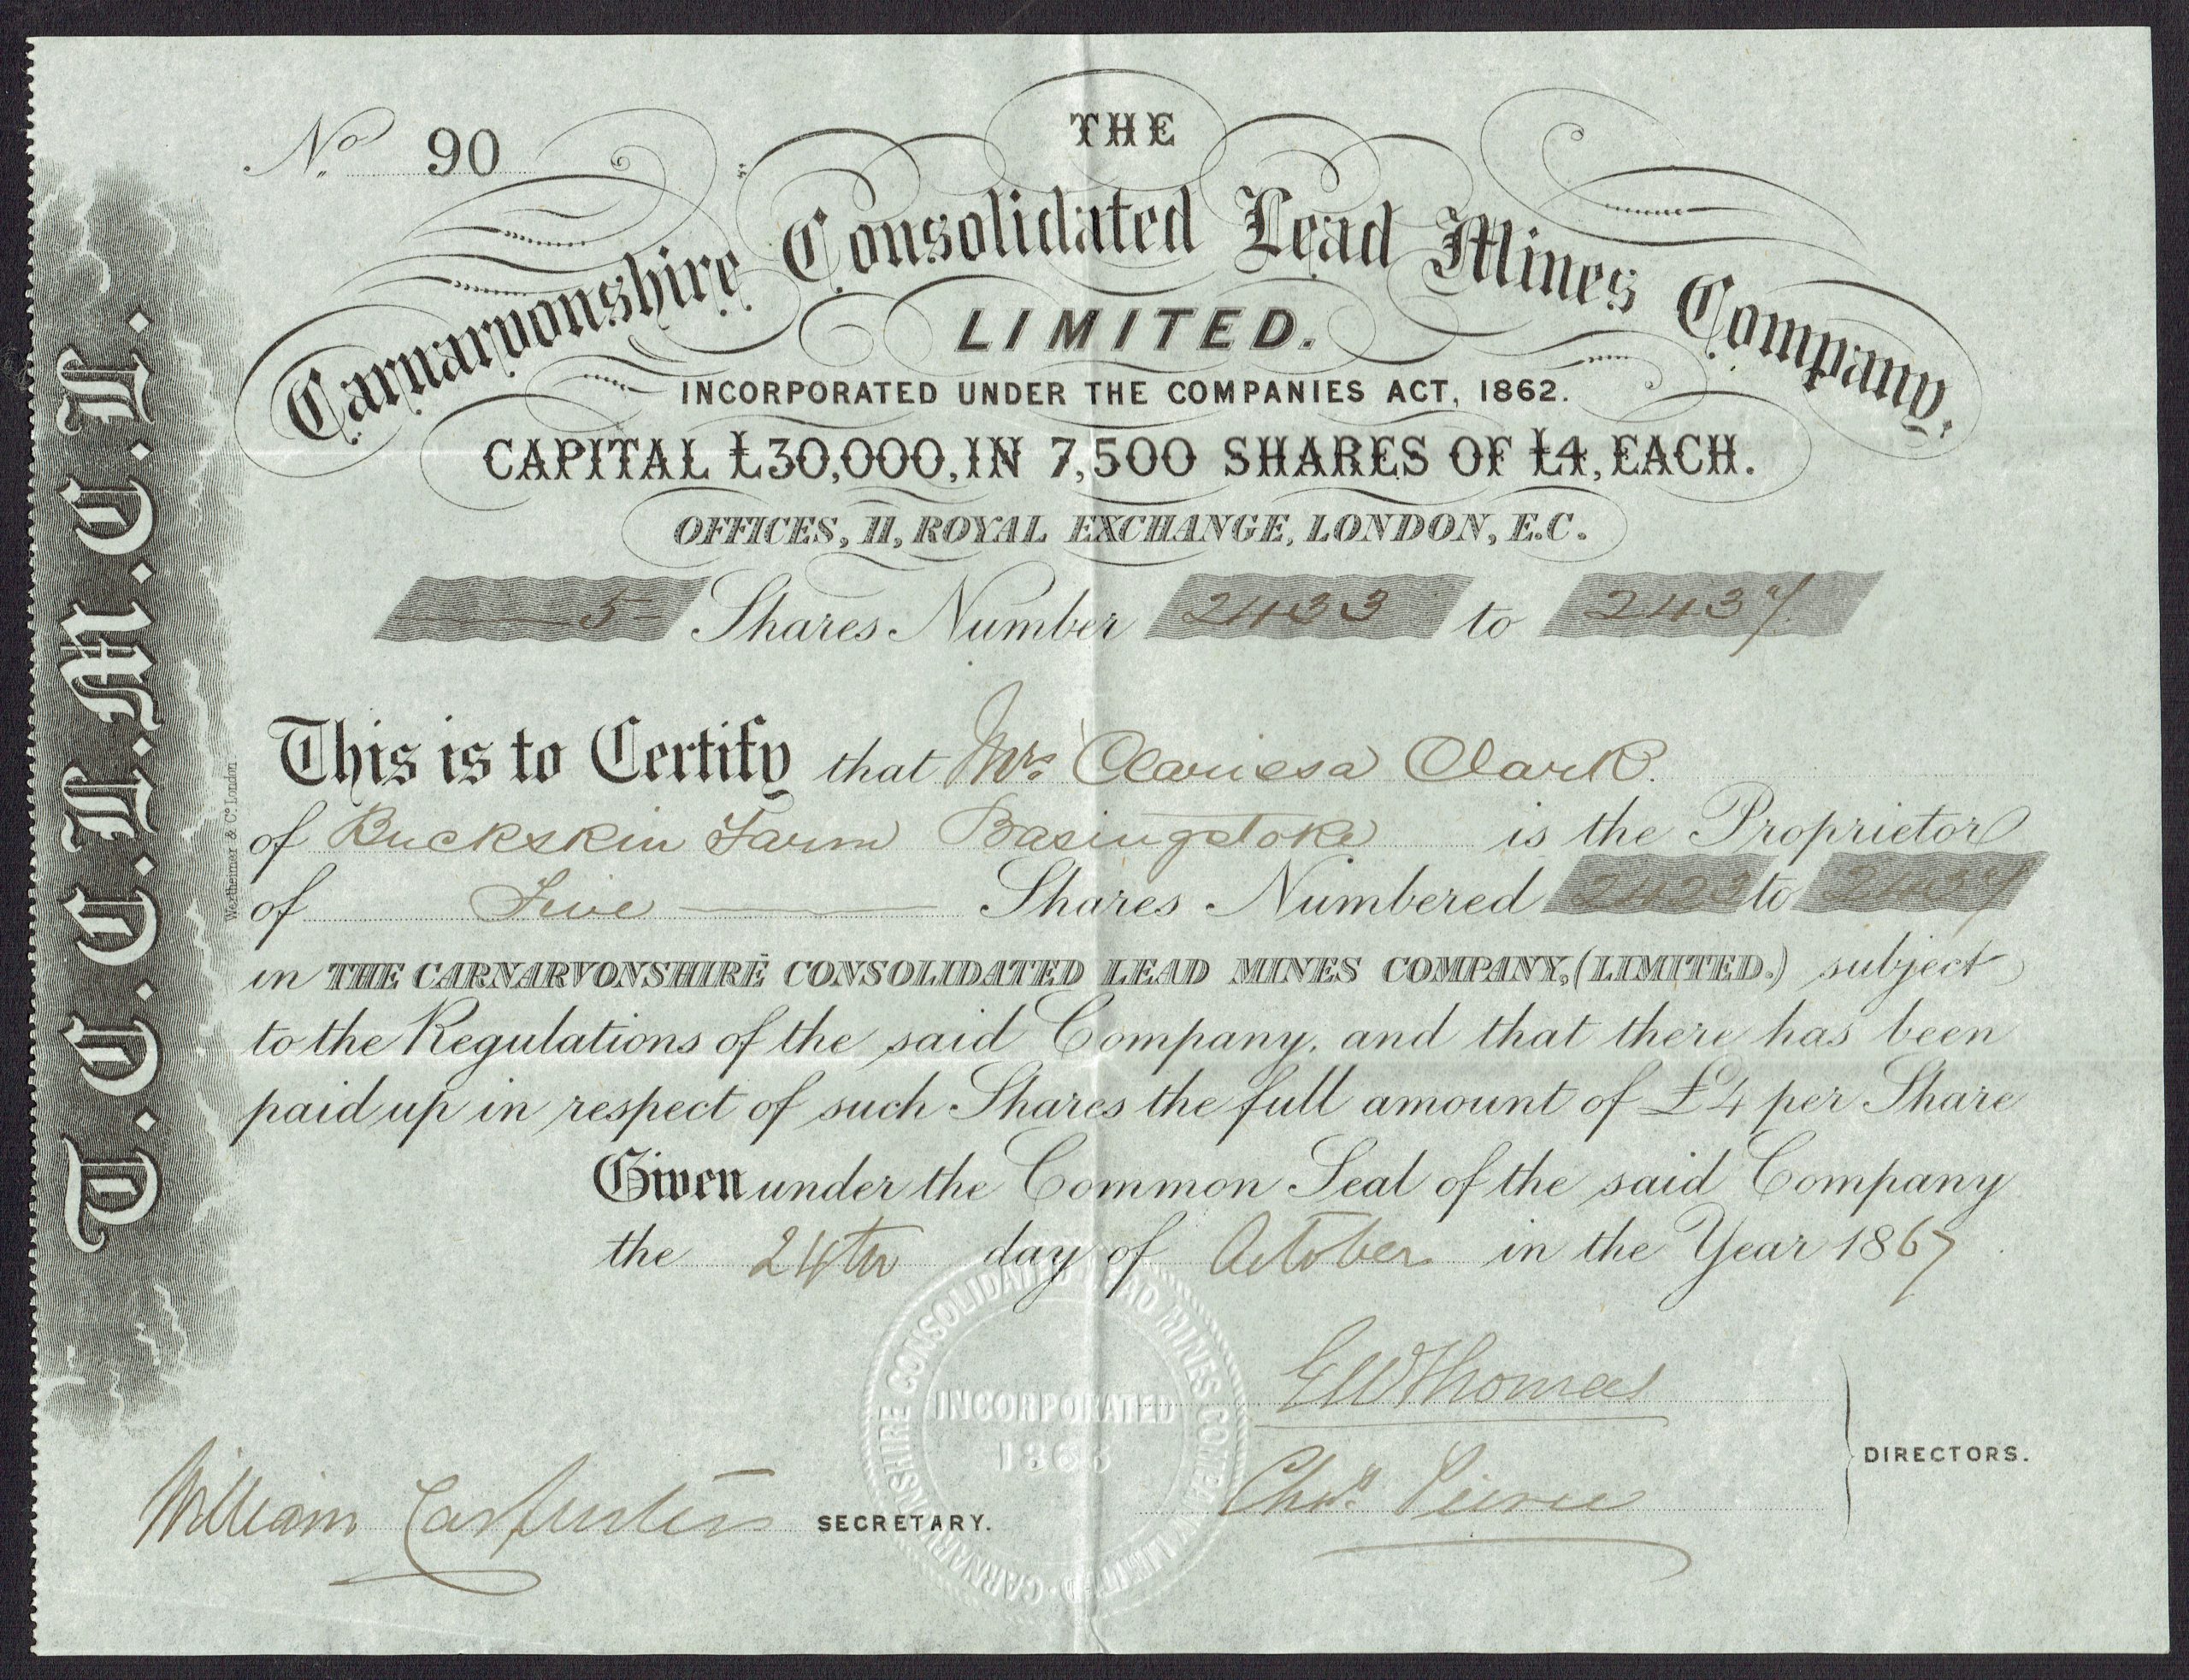 No. 90
THE
Carnarvonshire Consolidated Lead Mines Company,
LIMITED.
INCORPORATED UNDER THE COMPANIES ACT, 1862.
CAPITAL £30,000, IN 7,500 SHARES OF £4, EACH.
OFFICES, 11, ROYAL EXCHANGE, LONDON, E.C.
5 Shares Number 2433 to 2437
This is to Certify that Mrs Clariesa Clark
of Buckskin Farm Basingstoke is the Proprietor
of Five Shares Numbered 2433 to 2437
in THE CARNARVONSHIRE CONSOLIDATED LEAD MINES COMPANY, (LIMITED.) subject
to the Regulations of the said Company, and that there has been
paid up in respect of such Shares the full amount of £4 per Share
Given under the Common Seal of the said Company
the 24th day of October in the Year 1867
G W Thomas
Chas. Peirce
DIRECTORS.
William Carpenter SECRETARY.
CARNARVONSHIRE CONSOLIDATED LEAD MINES COMPANY LIMITED
INCORPORATED
T.C.C.L.M.C.L.
Wertheimer & Co. London